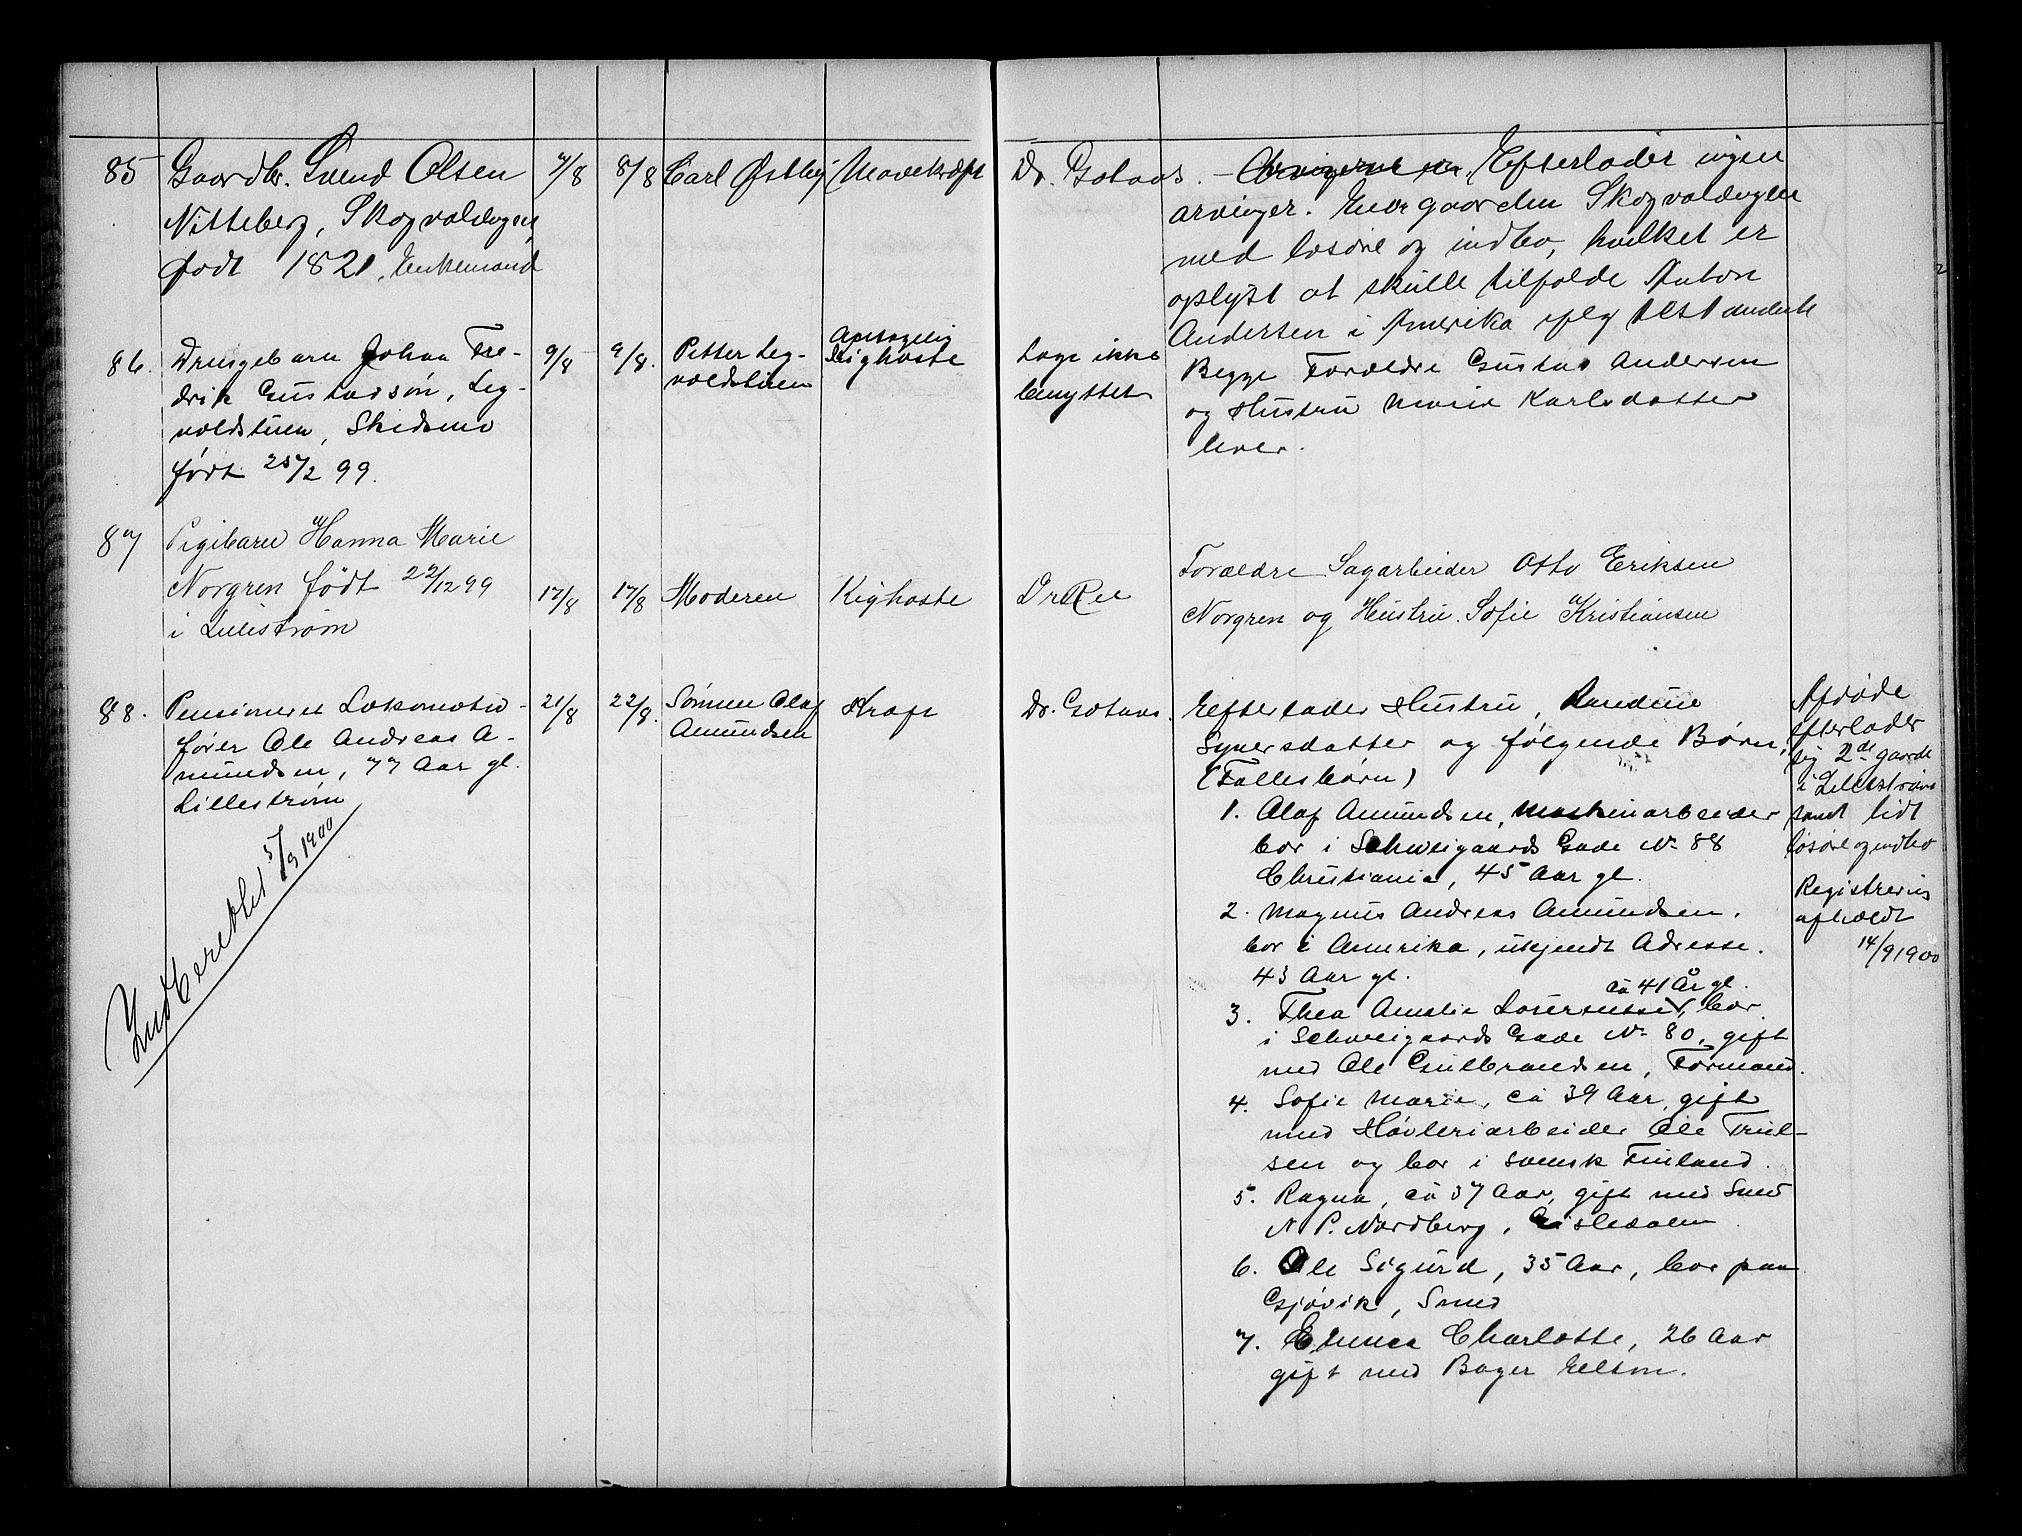 85 Gaardbr. Svend Olsen 7/8 8/8 Carl Østby Mavekræft Dr. Gotaas. – Arvingerne er. Efterlader ingen
Nitteberg, Skogvaldvogen arvinger. Eier gaarden Skogvaldvogen
født 1821. Enkemand med løsøre og indbo, hvilket er
oplyst at skulle tilfalde Anton
Andersen i Amerika iflg testamente
86. Drengebarn Johan Fre- 9/8 9/8. Petter Leg- Antagelig Læge ikke Begge Forældre Gustav Andersen
drik Gustavsøn, Leg- voldstuen Kighoste benyttet og Hustru Marie Karlsdatter
voldstuen, Skedsmo lever.
født 25/2 99.
87 Pigebarn Hanna Marie
Norgren født 22/12 99 17/8 17/8 Moderen Kighoste Dr Ree Forældre Sagarbeider Otto Eriksen
i Lillestrøm Norgren og Hustru Sofie Kristiansen
88. Pensioneret Lokomotiv- 21/8 22/8. Sønnen Olaf Kræft Dr. Gotaas. Efterlader Hustru, Randine
fører Ole Andreas A- Amundsen Syversdatter og følgende Børn,
mundsen, 77 Aar gl. (Fællesbørn)
Lillestrøm
Indberettet 5/9 1900
1. Olaf Amundsen, Maskinarbeider
bor i Schweigaards Gade No 88
Christiania, 45 Aar gl.
2. Magnus Andreas Amundsen.
bor i Amerika, ukjendt Adresse.
43 Aar gl.
ca 41 År gl.
3. Thea Amalie bor
i Schweigaards Gade No 80, gift
med Ole Gulbrandsen, Formand.
4. Sofie Marie, ca 39 Aar, gift
med Høvleriarbeider Ole Trul-
sen og bor i svensk Finland.
5. Ragna, ca 37 Aar, gift med Smed
N. P. Nordberg,
6. Ole Sigurd, 35 Aar, bor paa
Gjøvik, Smed
7. Emma Charlotte, 26 Aar
gift med Bager Elton.
Afdøde
efterlader
sig 2de gaarde
i Lillestrøm
samt lidt
løsøre og indbo
Registrering
afholdt
14/9 1900